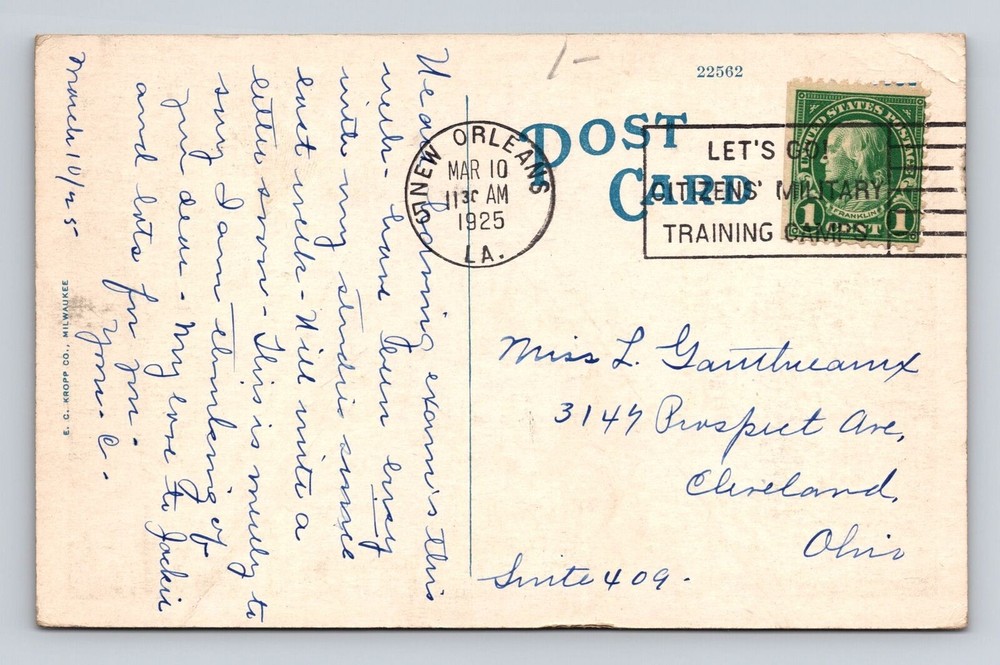 March 10/25
We are having exams this
week - have been busy
with my studies since
last week - Will write a
letter soon - This is merely to
say I am thinking of
you dear - My love to Jackie
and lots for you -
Yours - C -
E. C. KROPP CO., MILWAUKEE
1-
22562
POST
CARD
NEW ORLEANS
MAR 10
1130 AM
1925
LA.
LET'S GO!
CITIZENS' MILITARY
TRAINING CAMPS
UNITED STATES POSTAGE
FRANKLIN
1 CENT 1
Miss L. Gauthreaux
3147 Prospect Ave,
Cleveland,
Ohio
Suite 409.